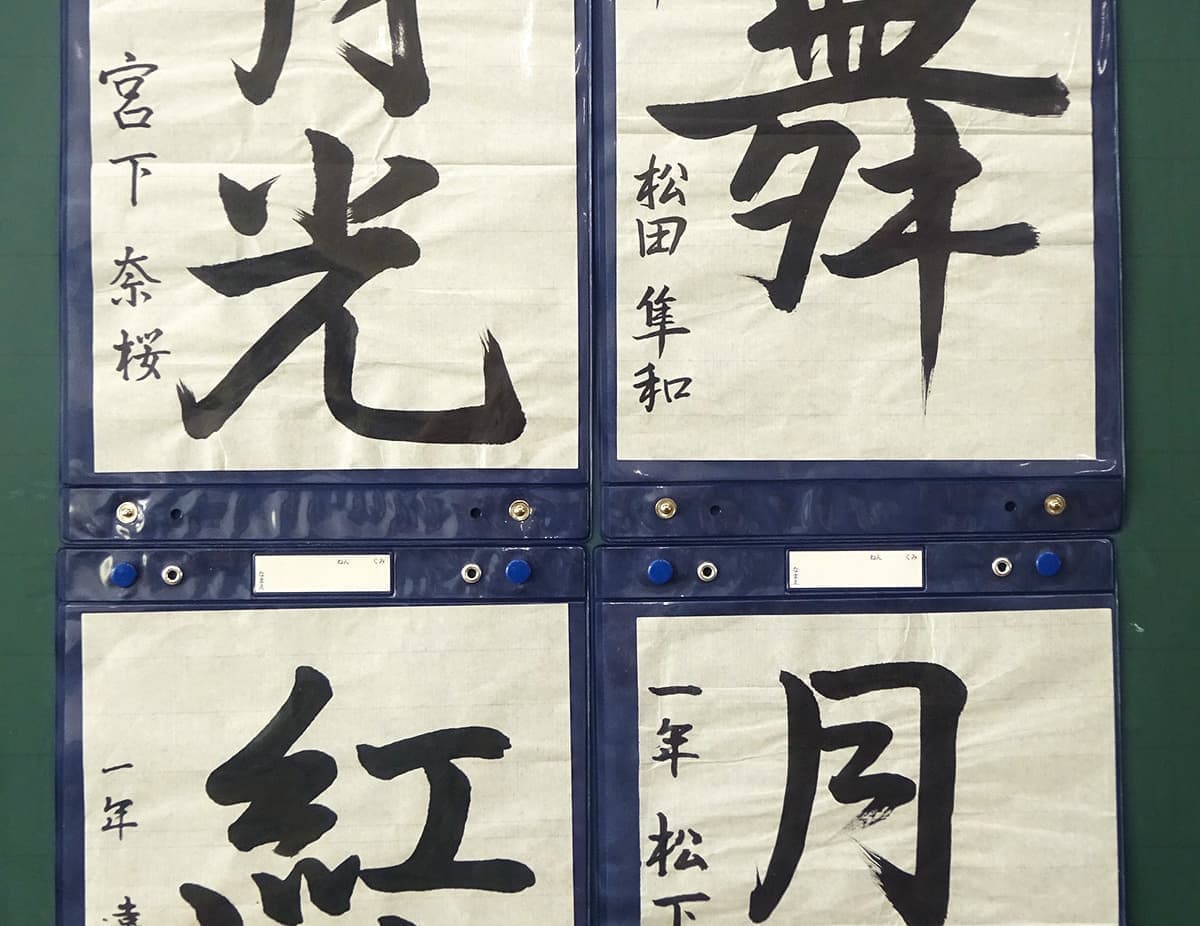 月光
宮下 奈桜
舞
松田 隼和
ねん くみ
なまえ
ねん くみ
なまえ
紅
一年
月
一年 松下